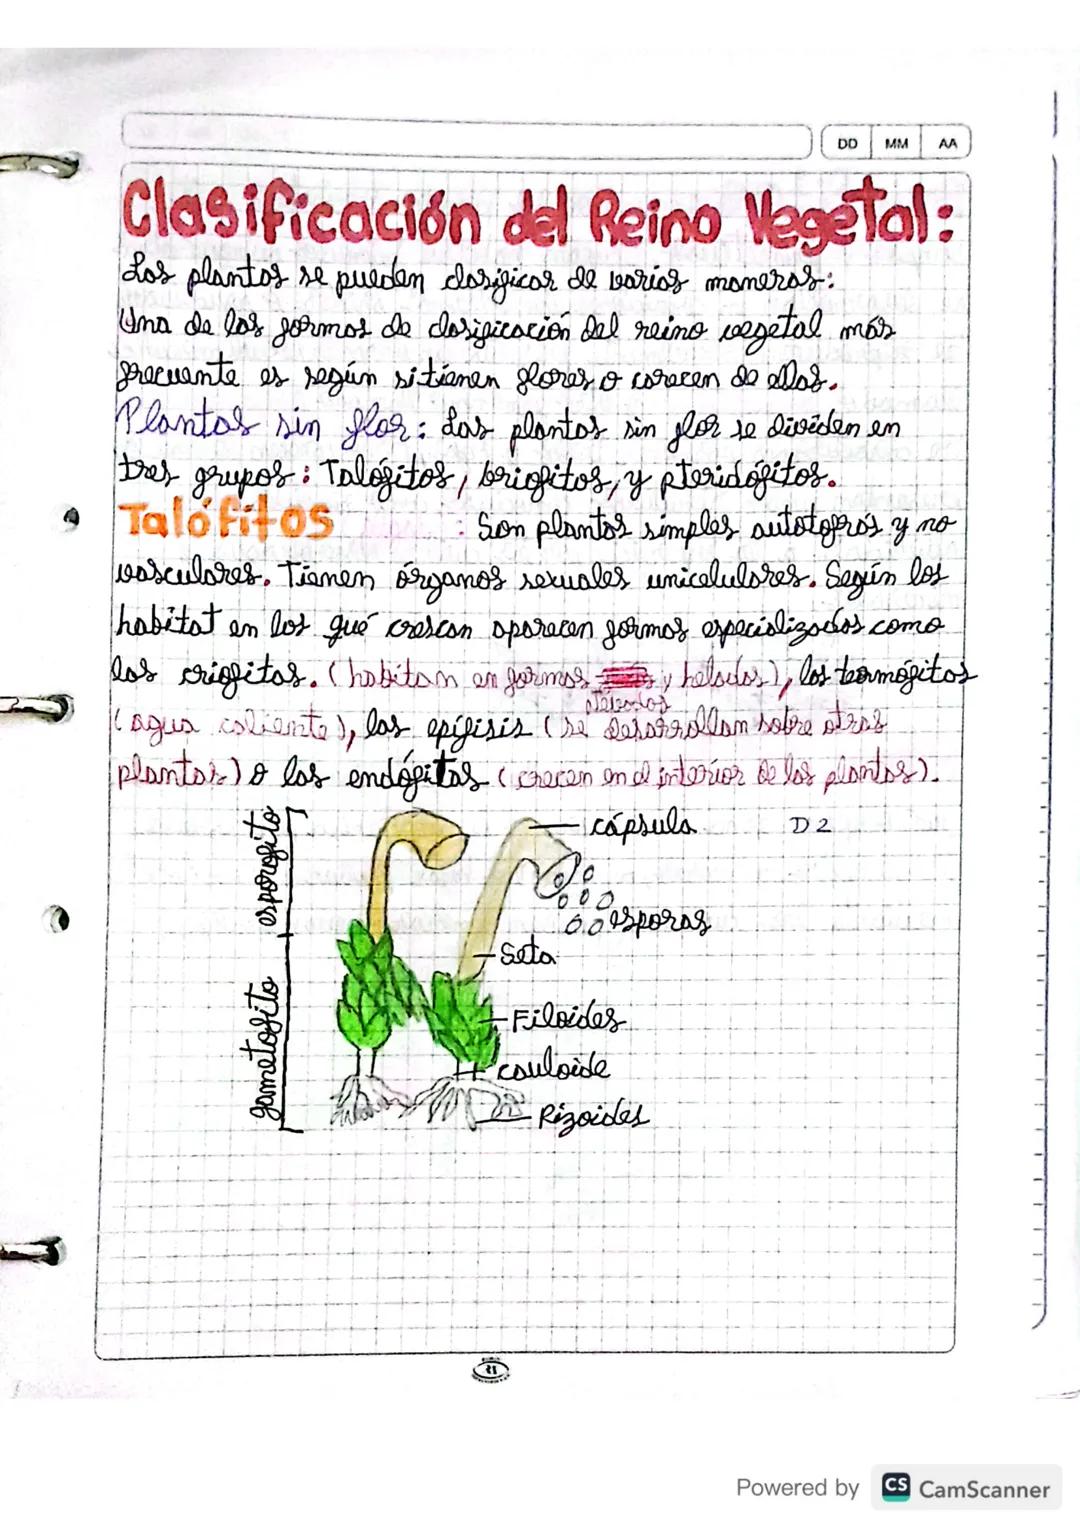 DD MM AA
Clasificación del Reino Vegetal:
Las plantas se pueden clasificar de varias maneras:
Una de las formas de clasificación del reino vegetal más
frecuente es según si tienen flores o carecen de ellas.
Plantas sin flor: Las plantas sin flor se dividen en
tres grupos: Talófitos, briofitos, y pteridófitos.
Talófitos : Son plantas simples autotofrós y no
vasculares. Tienen órganos sexuales unicelulares. Según los
habitat en los qué crescan aparecen formas especializadas como
las criofitas. (habitan en formas y heladas), las termófitas
(agua caliente), las epífisis (se desarrollan sobre otras
plantas) o las endófitas (crecen en el interior de las plantas).
esporofito
cápsula
D2
esporas
Seta
gametofito
Filoides
cauloide
Rizoides
Powered by CS CamScanner